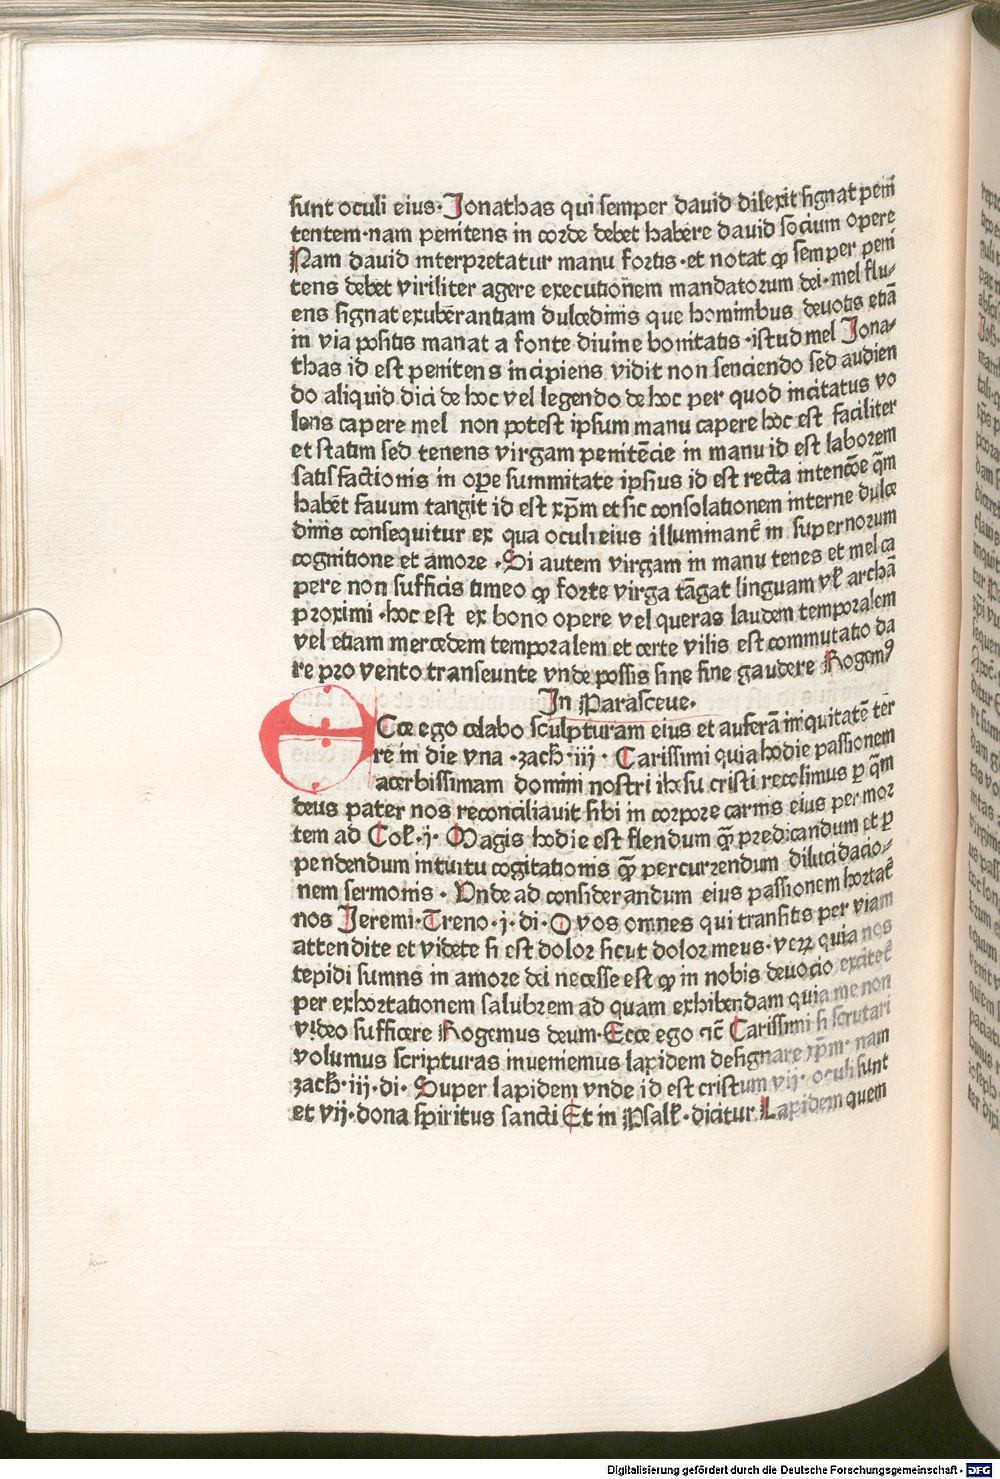 sunt oculi eius· Jonathas qui semper dauid dilexit signat peni
tentem·nam penitens in corde debet habere dauid socium opere
Nam dauid interpretatur manu fortis·et notat ꝙ semper peni
tens debet viriliter agere executionem mandatorum dei·mel flu⸗
ens signat exuberantiam dulcedinis que hominibus deuotis etiā
in via positis manat a fonte diuine bonitatis·istud mel Jona⸗
thas id est penitens incipiens vidit non senciendo sed audien
do aliquid dici de hoc vel legendo de hoc per quod incitatus vo
lens capere mel non potest ipsum manu capere hoc est faciliter
et statim sed tenens virgam penitēcie in manu id est laborem
satisfactionis in oꝑe summitate ipsius id est recta intencōe q̄m
habēt fauum tangit id est xp̄m et sic consolationem interne dulce
dinis consequitur ex qua oculi eius illuminant᷑ in supernorum
cognitione et amore ·Si autem virgam in manu tenes et mel ca
pere non sufficis timeo ꝙ forte virga tāgat linguam vl̓ archā
proximi ·hoc est ex bono opere vel queras laudem temporalem
vel etiam mercedem temporalem et certe vilis est commutatio da
re pro vento transeunte vnde possis sine fine gaudere Rogemꝰ
In Parasceue·
ECce ego celabo sculpturam eius et auferā iniquitatē ter
re in die vna ·zach̓·iij· Carissimi quia hodie passionem
acerbissimam domini nostri ih̄su cristi recolimus ꝑ q̄m
deus pater nos reconciliauit sibi in corpore carnis eius per mor
tem ad Col̓·j· Magis hodie est flendum q̄ꝫ predicandum et ꝑ
pendendum intuitu cogitationis q̄ꝫ percurrendum dilucidacio⸗
nem sermonis· Vnde ad considerandum eius passionem hortat᷑
nos Jeremi·Treno·j·di·O vos omnes qui transitis per viam
attendite et videte si est dolor sicut dolor meus·veꝝ quia nos
tepidi sumus in amore dei necesse est ꝙ in nobis deuocio excitet᷑
per exhortationem salubrem ad quam exhibendam quia me non
video sufficere Rogemus deum·Ecce ego ⁊c̄ Carissimi si scrutari
volumus scripturas inueniemus lapidem designare xp̄m· nam
zach̓·iij·di· Super lapidem vnde id est cristum vij· oculi sunt
et vij·dona spiritus sancti Et in Psalḿ·dicitur Lapidem quem
Digitalisierung gefördert durch die Deutsche Forschungsgemeinschaft - DFG